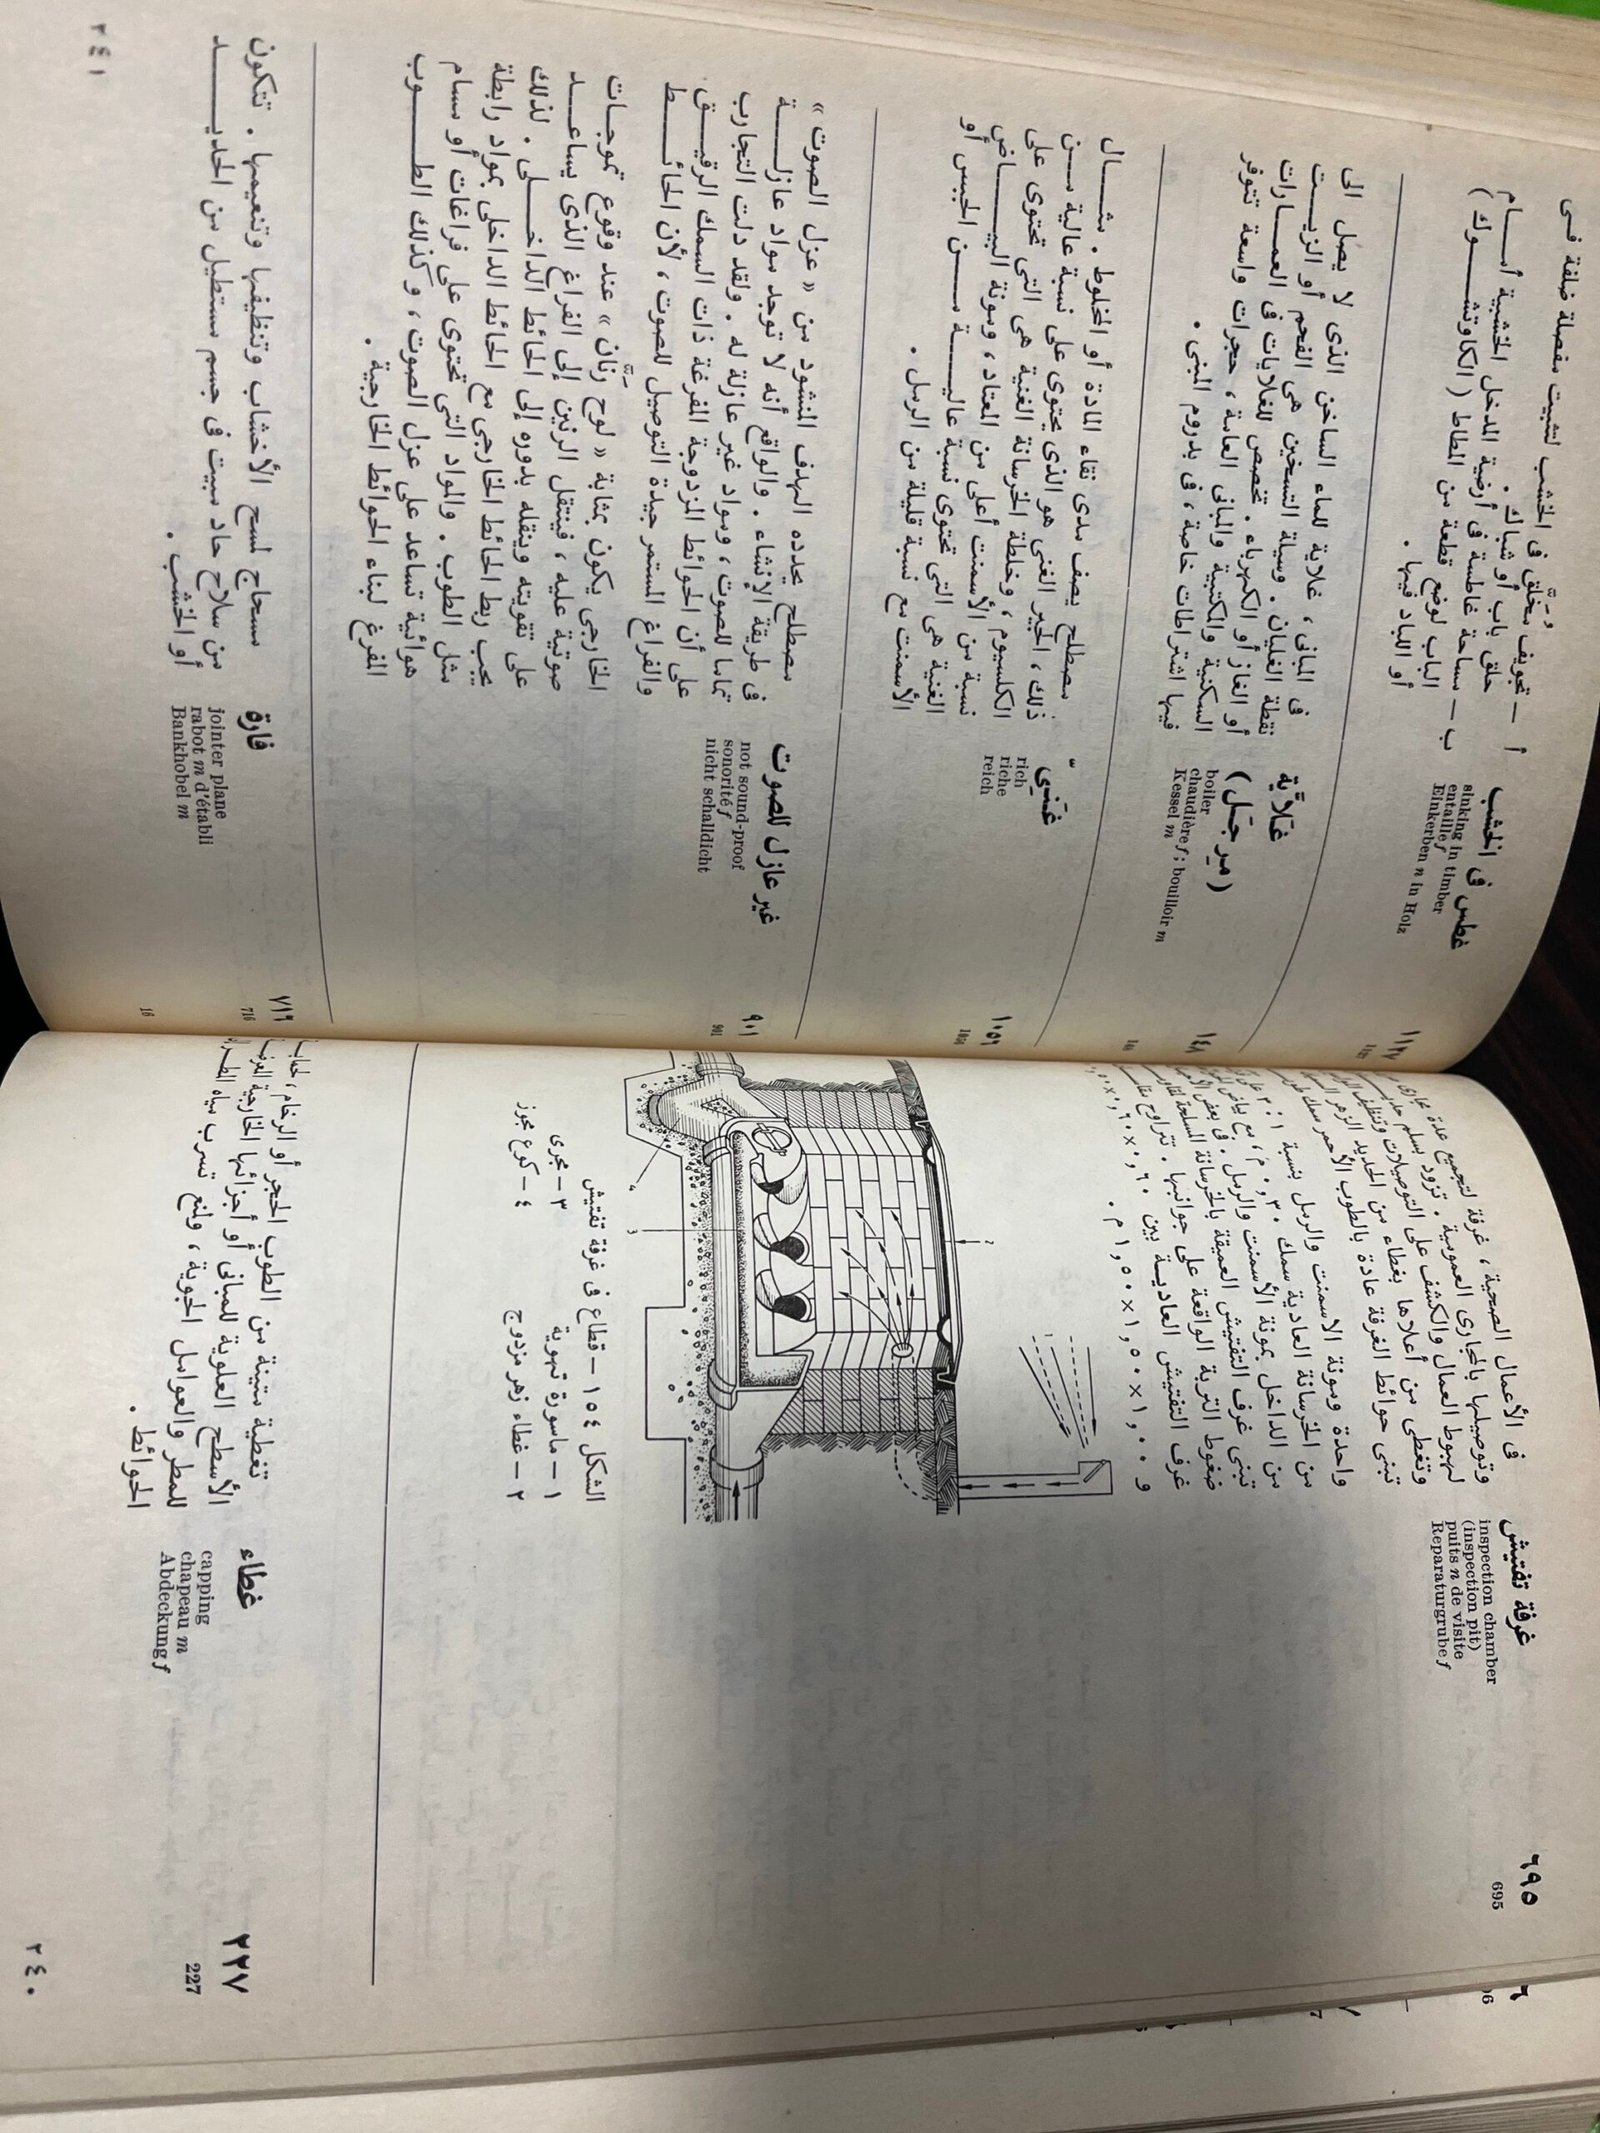 غرفة تفتيش
inspection chamber
(inspection pit)
puits n de visite
Reparaturgrube f
٦٩٥
695
فى الأعمال الصحية ، غرفة لتجميع عدة مجارى
وتوصيلها بالمجارى العمومية . تزود بسلم
لهبوط العمال والكشف على التوصيلات وتنظيف
وتغطى من أعلاها بغطاء من الحديد الزهر
تبنى حوائط الغرفة عادة بالطوب الأحمر سمك
واحدة ومونة الاسمنت والرمل بنسبة ١ :
من الخرسانة العادية سمك ٣٠ و٠ م ، مع بياض
من الداخل بمونة الأسمنت والرمل . فى بعض
تبنى غرف التفتيش العميقة بالخرسانة المسلحة
ضغوط التربة الواقعة على جوانبها . تتراوح
غرف التفتيش العادية بين ٦٠ و٠ × ٦٠ و٠ ×
و ٠٠ و١ × ٥٠ و١ × ٥٠ و١ م .
1
2
3
4
الشكل ١٥٤ – قطاع فى غرفة تفتيش
١ – ماسورة تهوية
٣ – مجرى
٢ – غطاء زهر مزدوج
٤ – كوع مجوز
غطاء
capping
chapeau m
Abdeckung f
٢٢٧
227
تغطية متينة من الطوب الحجر أو الرخام ،
الأسطح العلوية للمبانى أو أجزائها الخارجية
للمطر والعوامل الجوية ، ولمنع تسرب مياه
الحوائط .
٢٤٠
غطس فى الخشب
sinking in timber
entaille f
Einkerben n in Holz
أ – تجويف مخلق فى الخشب لتثبيت مفصلة ضلفة فى
حلق باب أو شباك .
ب – مساحة غاطسة فى أرضية المدخل الخشبية أمام
الباب لوضع قطعة من المطاط ( الكاوتشوك )
أو اللباد فيها .
غلاّية
(مرجل)
boiler
chaudière f ; bouilloir m
Kessel m
١٤٨
فى المبانى ، غلاية للماء الساخن الذى لا يصل الى
نقطة الغليان . وسيلة التسخين هى الفحم أو الزيت
أو الغاز أو الكهرباء . تخصص للغلايات فى العمارات
السكنية والمكتبية والمبانى العامة ، حجرات واسعة تتوفر
فيها اشتراطات خاصة ، فى بدروم المبنى .
غنىّ
rich
riche
reich
١٠٥٩
مصطلح يصف مدى نقاء المادة أو المخلوط . مثال
ذلك ، الجير الغنى هو الذى يحتوى على نسبة عالية من
الكلسيوم ، وخلطة الخرسانة الغنية هى التى تحتوى على
نسبة من الأسمنت أعلى من المعتاد ، ومونة البياض
الغنية هى التى تحتوى نسبة عالية من الجبس أو
الأسمنت مع نسبة قليلة من الرمل .
غير عازل للصوت
not sound-proof
sonorité f
nicht schalldicht
٩٠١
901
مصطلح يحدده الهدف المنشود من « عزل الصوت »
فى طريقة الإنشاء . والواقع أنه لا توجد مواد عازلة
تماما للصوت ، ومواد غير عازلة له . ولقد دلت التجارب
على أن الحوائط المزدوجة المفرغة ذات السمك الرقيق
والفراغ المستمر جيدة التوصيل للصوت ، لأن الحائط
الخارجى يكون بمثابة « لوح رنّان » عند وقوع تموجات
صوتية عليه ، فينتقل الرنين إلى الفراغ الذى يساعد
على تقويته وينقله بدوره إلى الحائط الداخلى . لذلك
يجب ربط الحائط الخارجى مع الحائط الداخلى بمواد رابطة
مثل الطوب . والمواد التى تحتوى على فراغات أو مسام
هوائية تساعد على عزل الصوت ، وكذلك الطوب
المفرغ لبناء الحوائط الخارجية .
فارة
jointer plane
rabot m d'établi
Bankhobel m
٧١٦
716
16
مسحاج لمسح الأخشاب وتنظيفها وتنعيمها . تتكون
من سلاح حاد مبيت فى جسم مستطيل من الحديد
أو الخشب .
٢٤١